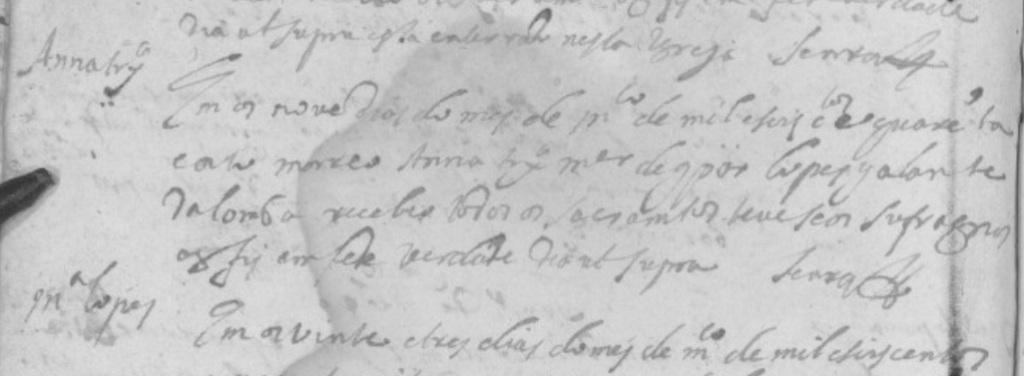 dia ut supra está enterrado nesta Igreja Serra
Anna frz
Em os nove dias do mes de m.ço de mil e seis c.tos e quare ta
e oito morreo Anna frz m.er de gpar lopes galante
da lomba recebeo todos os sacram.tos teve seos sufragios
fis em fee verdade dia ut supra Serra
m.a lopes
Em os vinte e tres dias do mes de m.ço de mil e seis centos